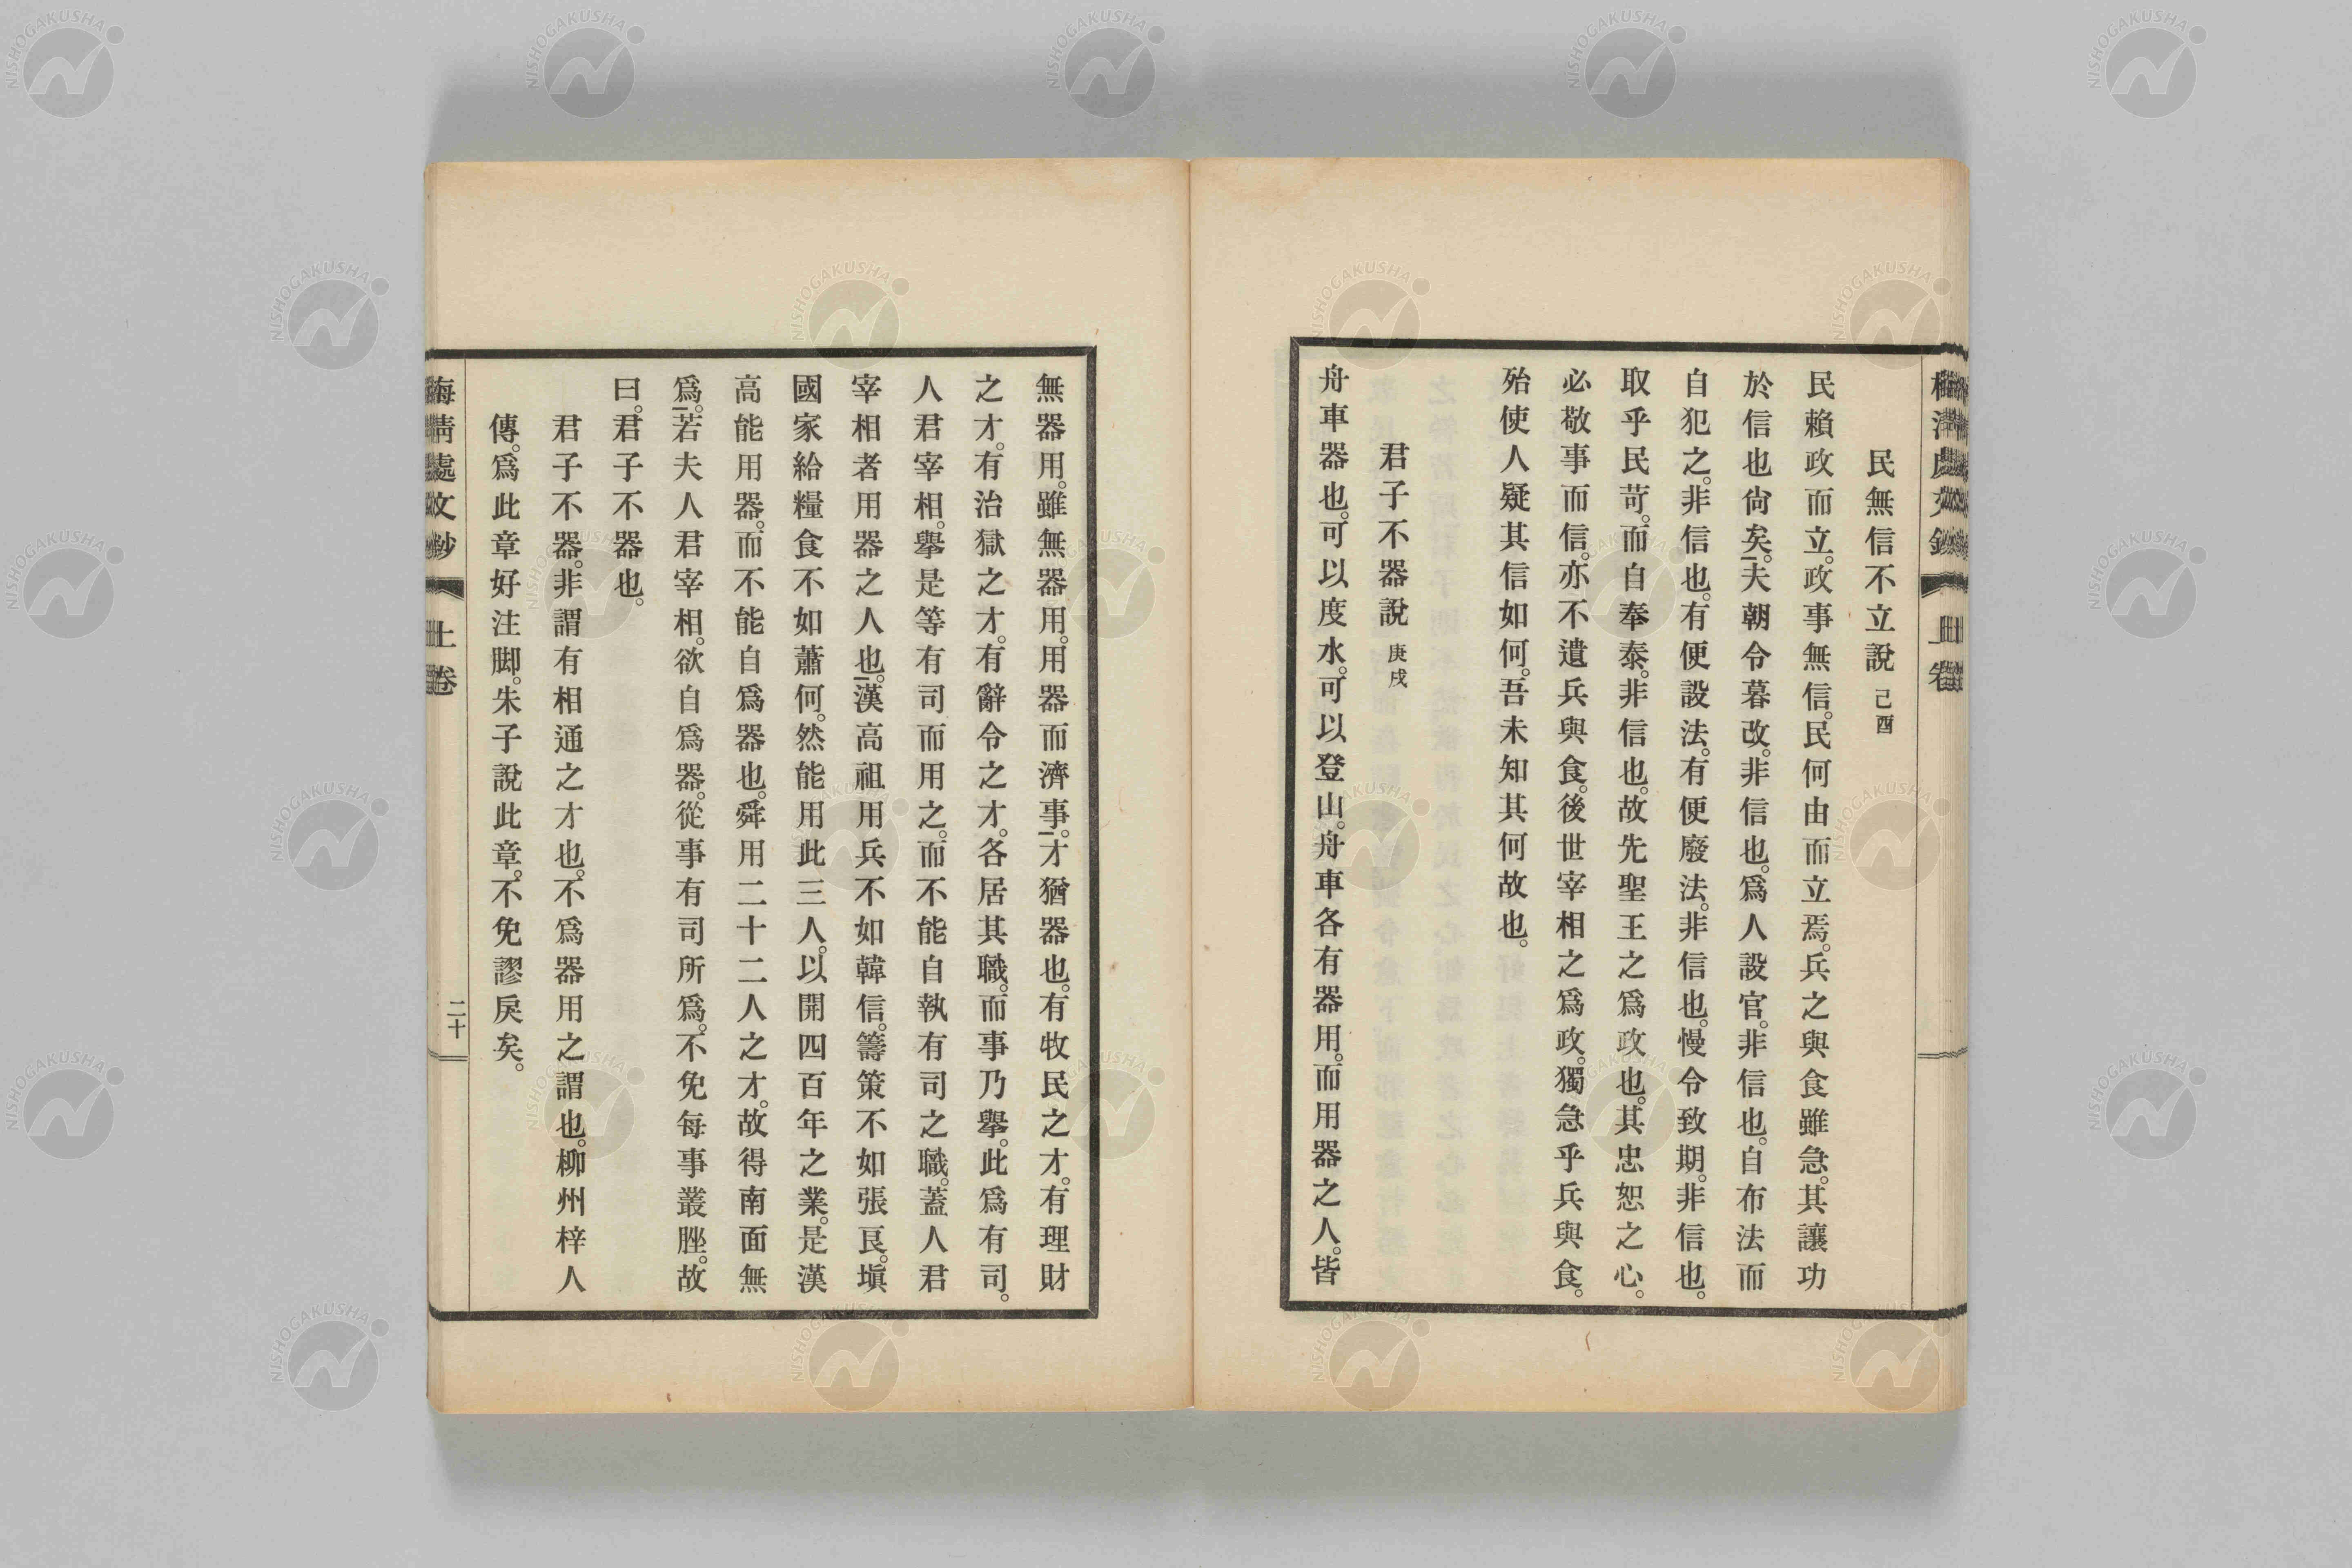 民無信不立說 己酉
民賴政而立。政事無信。民何由而立焉。兵之與食雖急。其讓功
於信也尙矣。夫朝令暮改。非信也。爲人設官。非信也。自布法而
自犯之。非信也。有便設法。有便廢法。非信也。慢令致期。非信也。
取乎民苛。而自奉泰。非信也。故先聖王之爲政也。其忠恕之心。
必敬事而信。亦不遺兵與食。後世宰相之爲政。獨急乎兵與食。
殆使人疑其信如何。吾未知其何故也。
君子不器說 庚戌
舟車器也。可以度水。可以登山。舟車各有器用。而用器之人。皆
無器用。雖無器用。用器而濟事。才猶器也。有牧民之才。有理財
之才。有治獄之才。有辭令之才。各居其職。而事乃擧。此爲有司。
人君宰相。擧是等有司而用之。而不能自執有司之職。蓋人君
宰相者用器之人也。漢高祖用兵不如韓信。籌策不如張良。塡
國家給糧食不如蕭何。然能用此三人。以開四百年之業。是漢
高能用器。而不能自爲器也。舜用二十二人之才。故得南面無
爲。若夫人君宰相。欲自爲器。從事有司所爲。不免每事叢脞。故
曰。君子不器也。
君子不器。非謂有相通之才也。不爲器用之謂也。柳州梓人
傳。爲此章好注脚。朱子說此章。不免謬戾矣。
梅淸處文鈔 上卷 二十